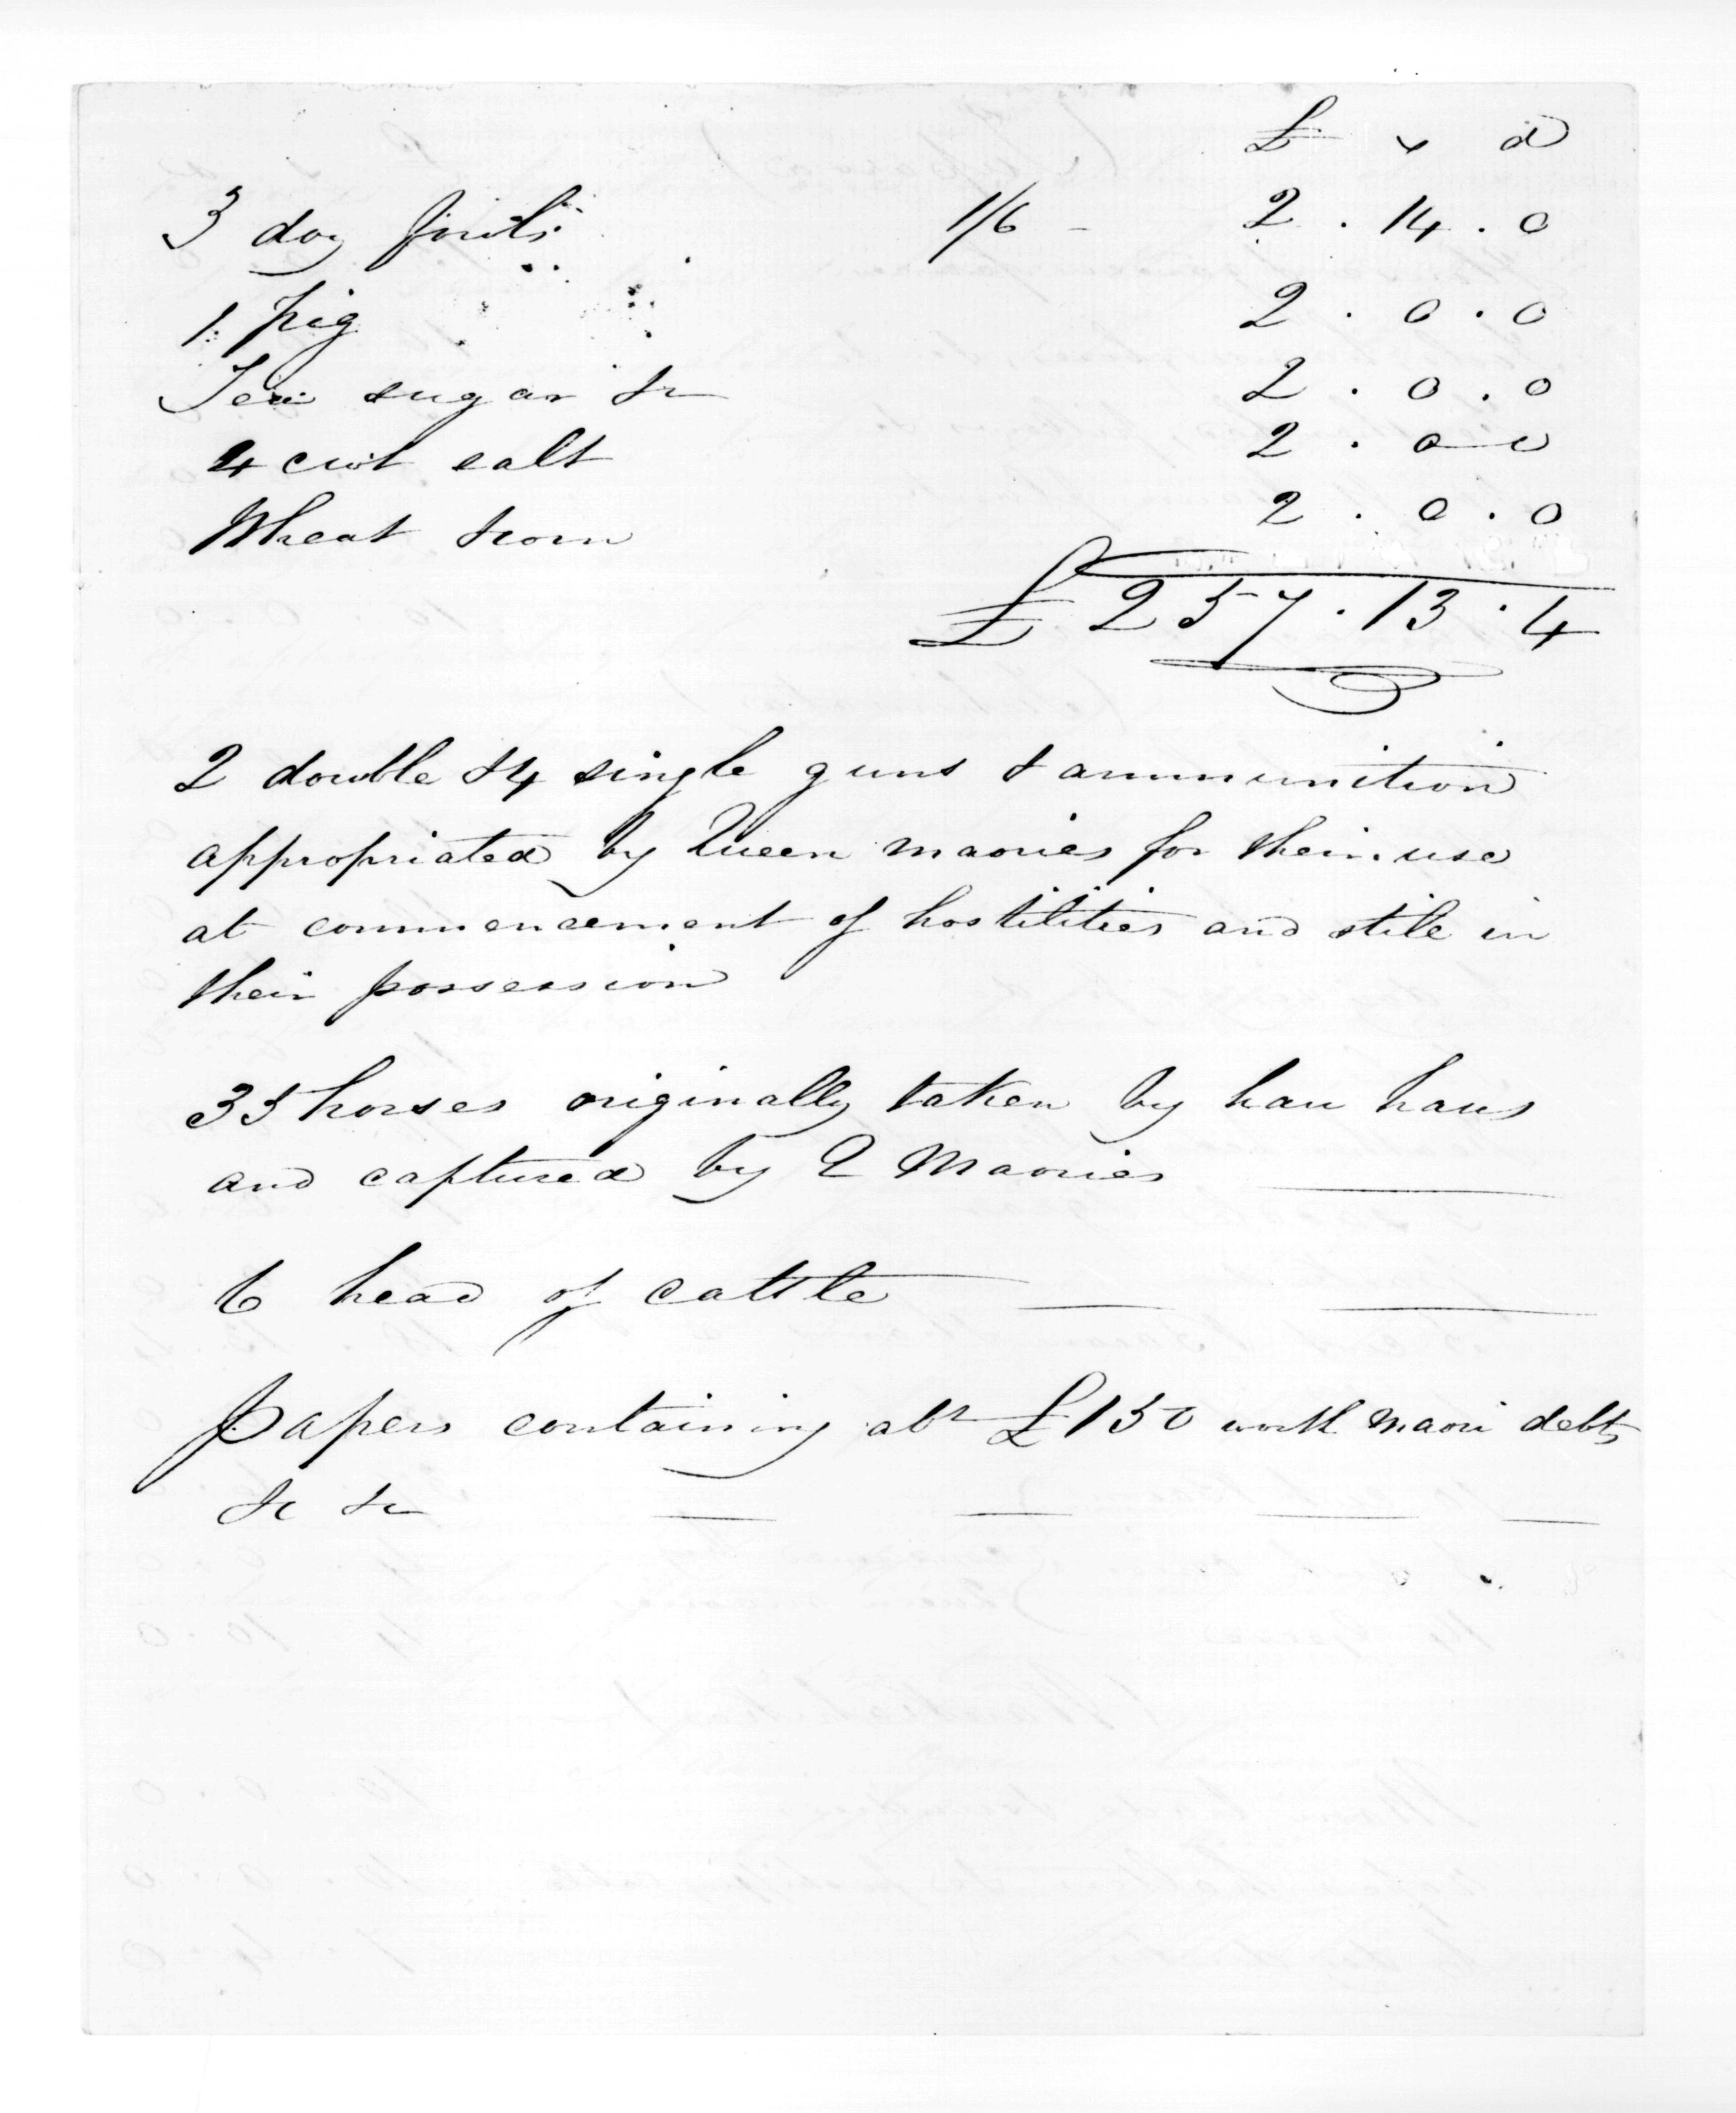 £ s d
3 doz fowls 1/6 - 2 . 14 . 0
1 pig 2 . 0 . 0
Tea sugar &c 2 . 0 . 0
4 cwt salt 2 . 0 0
Wheat & corn 2 . 0 . 0
£ 257 . 13 . 4
2 double & 4 single guns & ammunition
appropriated by Queen maories for their use
at commencement of hostilities and still in
their possession
35 horses originally taken by hau haus
and captured by Q Maories
6 head of cattle
Papers containing abt £150 worth Maori debts
&c &c